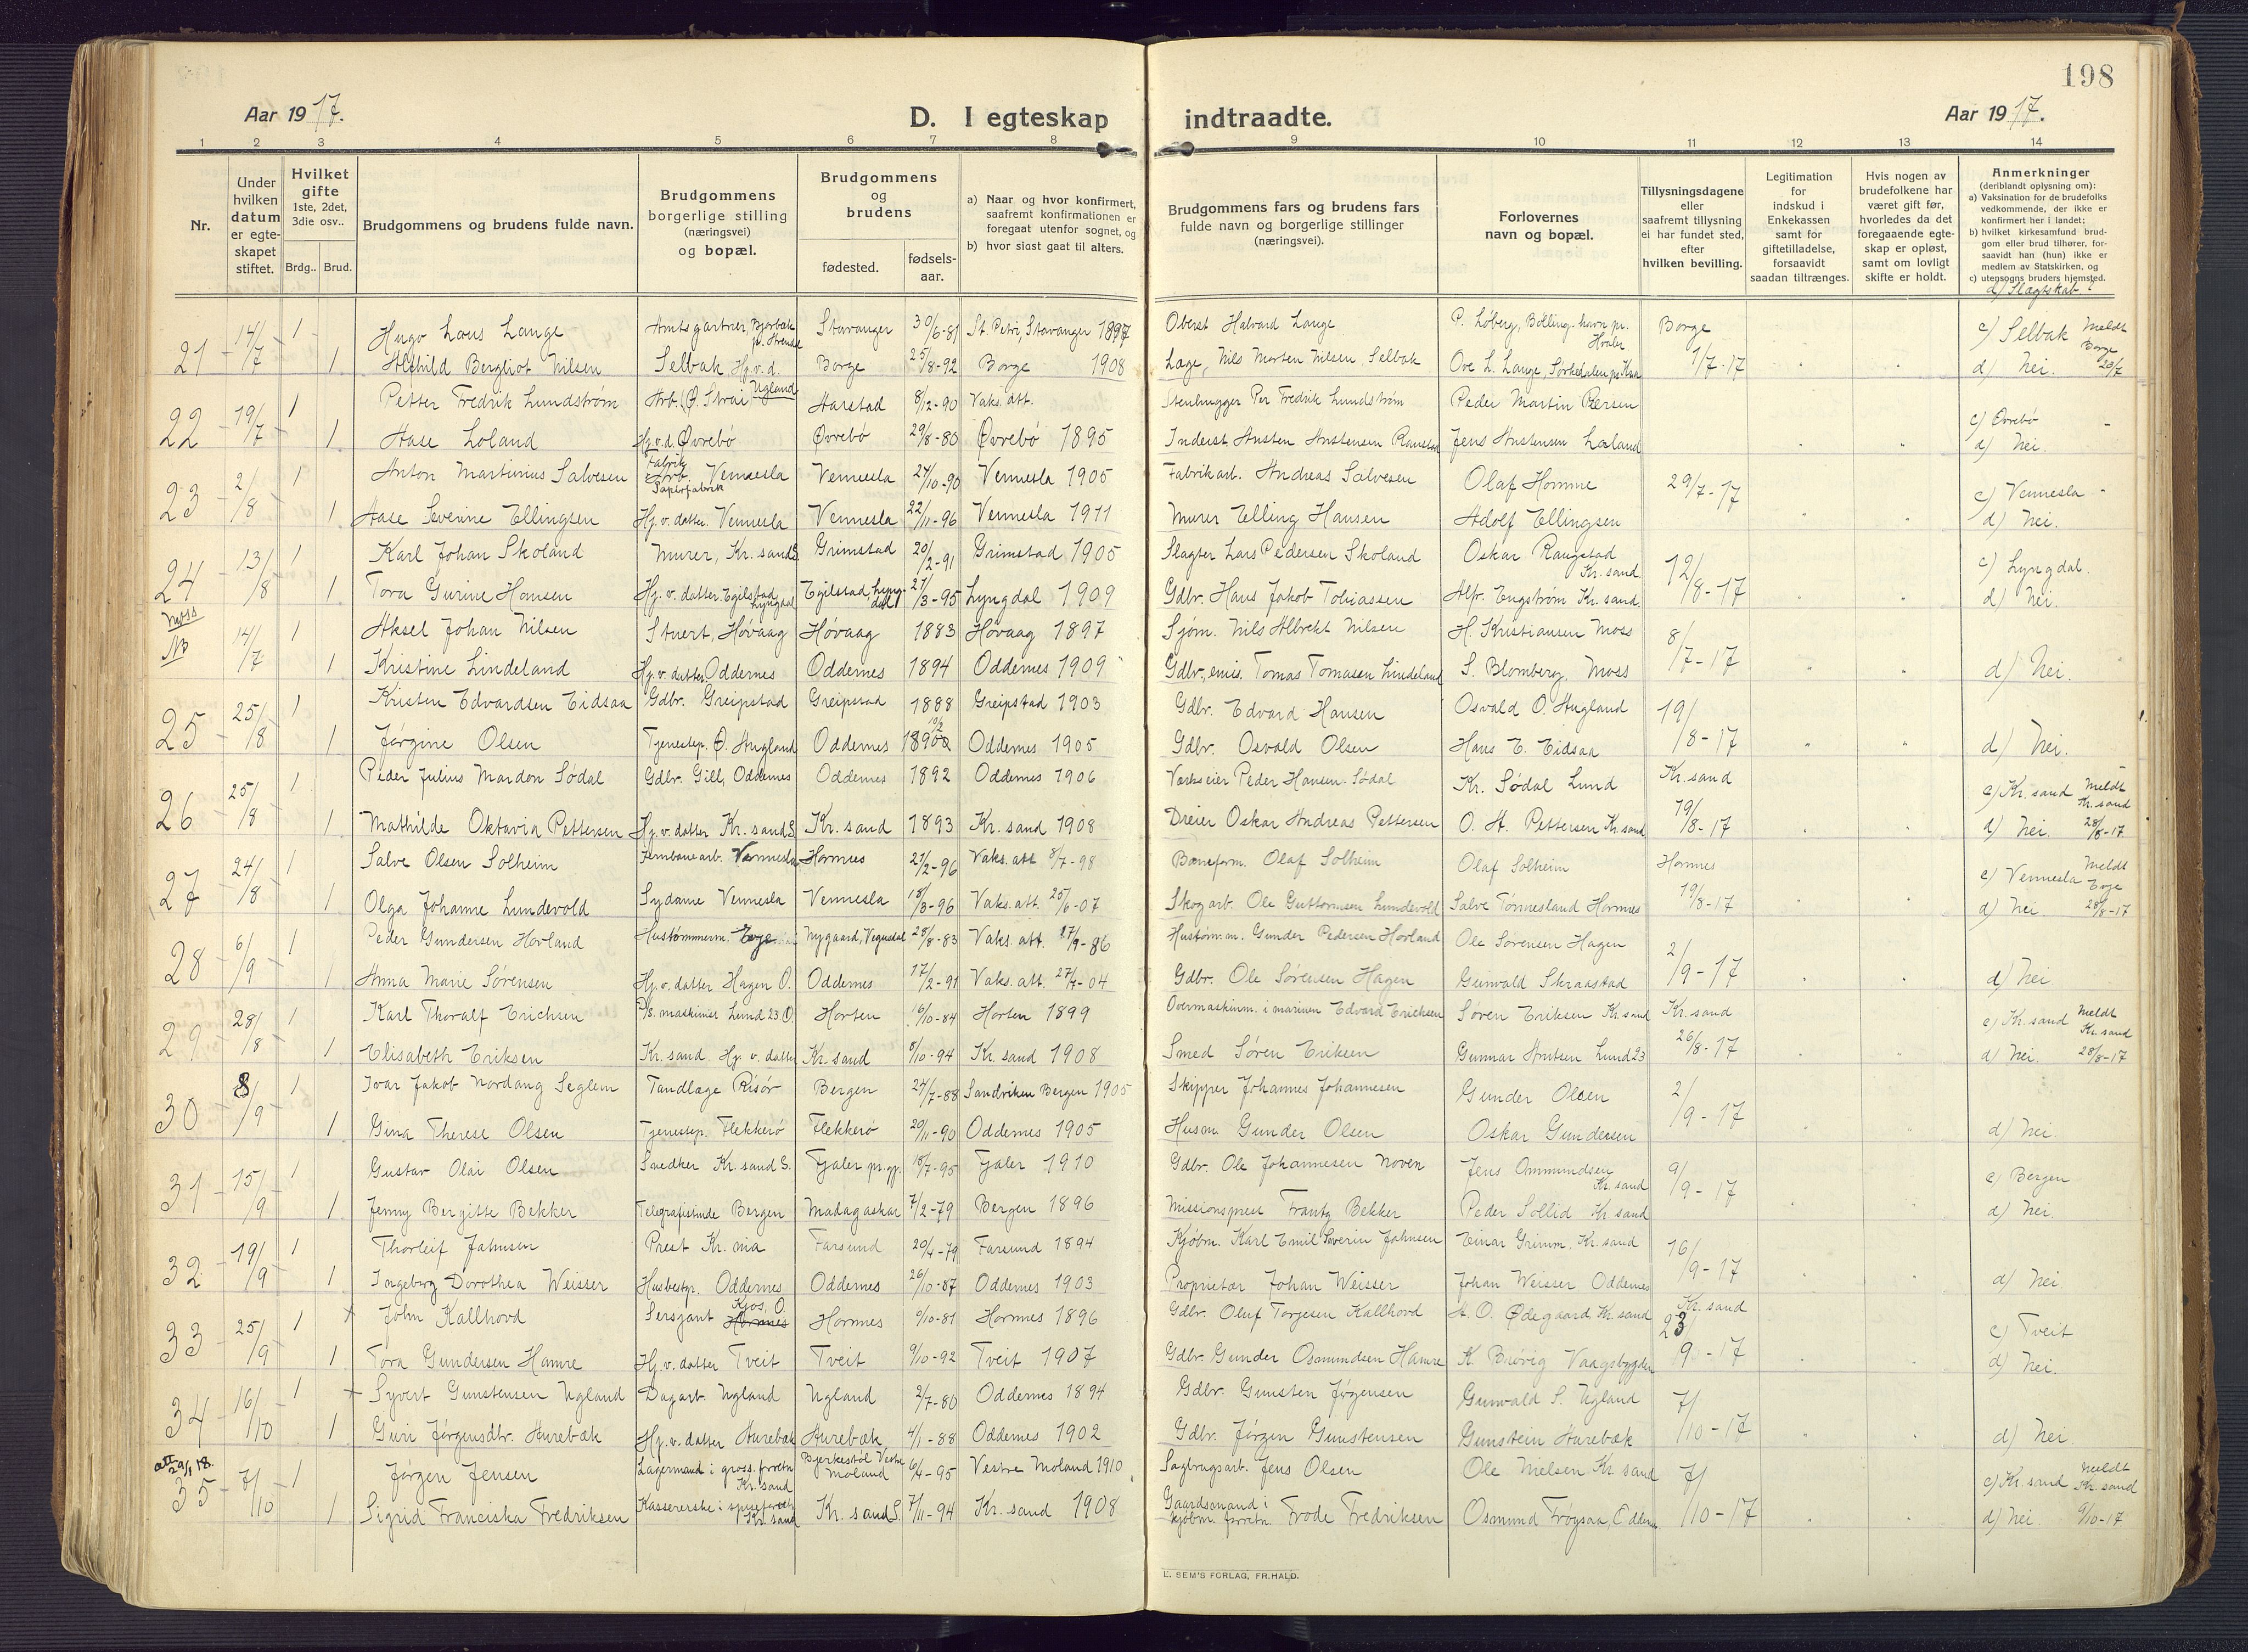 198
Aar 1917.
D. I egteskap indtraadte.
Aar 1917.
1 2 3 4 5 6 7 8 9 10 11 12 13 14
Nr.
Under hvilken datum er egteskapet stiftet.
Hvilket gifte 1ste, 2det, 3die osv..
Brdg.. Brud.
Brudgommens og brudens fulde navn.
Brudgommens borgerlige stilling (næringsvei) og bopæl.
Brudgommens og brudens
fødested.
fødsels-aar.
a) Naar og hvor konfirmert, saafremt konfirmationen er foregaat utenfor sognet, og
b) hvor sidst gaat til alters.
Brudgommens fars og brudens fars fulde navn og borgerlige stillinger (næringsvei).
Forlovernes navn og bopæl.
Tillysningsdagene eller saafremt tillysning ei har fundet sted, efter hvilken bevilling.
Legitimation for indskud i Enkekassen samt for giftetilladelse, forsaavidt saadan tiltrænges.
Hvis nogen av brudefolkene har været gift før, hvorledes da det foregaaende egteskap er opløst, samt om lovligt skifte er holdt.
Anmerkninger (deriblandt oplysning om):
a) Vaksination for de brudefolks vedkommende, der ikke er konfirmert her i landet;
b) hvilket kirkesamfund brudgom eller brud tilhører, forsaavidt han (hun) ikke er medlem av Statskirken, og
c) utensogns bruders hjemsted.
d) Slægtskab?
21 14/7 1 Hugo Laus Lange Amtsgartner, St. Petri, Stavanger 1897 Stavanger 30/6-81 Oberst Halvard Lange P. Löberg, Borge 1/7-17 c) Selbak Meldt Borge 20/7
1 Bergliot Nilsen Selbak, Hj.v.d. Borge 25/8-92 Borge 1908 Læge, Nils Morten Nilsen, Selbak Ove L. Lange, d) Nei.
22 19/7 1 Petter Fredrik Lundstrøm Arb. Ø. Strai Ugland Harstad 8/12-90 Vaks. att. Stenhugger Per Fredrik Lundstrøm Peder Martin c) Øvrebø
1 Aase Loland Hj.v.d. Øvrebø Øvrebø 29/8-80 Øvrebø 1895 Inderst Austen Austensen Jens Austensen Løland d) Nei.
23 2/8 1 Anton Martinius Salvesen Fabrik Arb. Vennesla Papirfabrik Vennesla 24/10-90 Vennesla 1905 Fabrikarb. Andreas Salvesen Olaf Homme 29/7-17 c) Vennesla
1 Aase Severine Ellingsen Hj.v. datter. Vennesla Vennesla 22/11-96 Vennesla 1911 Murer Elling Hansen Adolf Ellingsen d) Nei.
24 13/8 1 Karl Johan Skoland Murer, Kr.sand S. Grimstad 20/2-91 Grimstad 1905 Slagter Lars Pedersen Skoland Oskar Raugstad Kr.sand 12/8-17 c) Lyngdal.
1 Tora Gurine Hansen Hj.v. datter. Egilstad Lyngdal Egilstad Lyngdal 27/3-95 Lyngdal 1909 Gdbr. Hans Jakob Tobiassen Alfr. Engstrøm Kr.sand. d) Nei.
Moss NB 14/7 1 Aksel Johan Nilsen Stuert, Høvaag Høvaag 1883 Høvaag 1897 Sjøm. Nils Albrekt Nilsen H. Kristiansen Moss 8/7-17
1 Kristine Lindeland Hj.v. datter Oddernes Oddernes 1894 Oddernes 1909 Gdbr., emis. Tomas Tomasen Lindeland S. Blomberg, Moss d) Nei.
25 25/8 1 Kristen Edvardsen Eidsaa Gdbr. Greipstad Greipstad 1888 Greipstad 1903 Gdbr. Edvard Hansen Osvald O. Augland 19/8-17
1 Jørgine Olsen Tjenestep. Ø. Augland Oddernes 1890 Oddernes 1905 Gdbr. Osvald Olsen Hans E. Eidsaa d) Nei.
26 25/8 1 Peder Julius Mardon Sødal Gdbr. Gill, Oddernes Oddernes 1892 Oddernes 1906 Værkseier Peder Hansen Sødal Kr. Sødal Lund Kr.sand 19/8-17 c) Kr.sand Meldt Kr.sand 28/8-17
1 Mathilde Oktavia Pettersen Hj.v. datter Kr.sand S. Kr.sand 1893 Kr.sand 1908 Dreier Oskar Andreas Pettersen O. A. Pettersen Kr.sand d) Nei.
27 24/8 1 Salve Olsen Solheim Jernbanearb. Vennesla Hornnes 21/2-96 Vaks. att 8/7-98 Baneform. Olaf Solheim Olaf Solheim Hornnes 19/8-17 c) Vennesla Meldt Evje 28/8-17
1 Olga Johanne Lundevold Sydame Vennesla Vennesla 18/3-96 Vaks. att. 25/6-07 Skogarb. Ole Guttormsen Lundevold Salve Tønnesland Hornnes d) Nei.
28 6/9 1 Peder Gundersen Hovland Hustømmerm. Evje Nygaard, Vegusdal 28/8-83 Vaks. att. 17/9-86 Hustøm.m. Gunder Pedersen Hovland Ole Sørensen Hagen 2/9-17
1 Anna Marie Sørensen Hj.v. datter Hagen O. Oddernes 17/2-91 Vaks. att. 27/7-04 Gdbr. Ole Sørensen Hagen Gunvald Skraastad d) Nei
29 28/8 1 Karl Thoralf Erichsen maskinist Lund 23 O. Horten 16/10-84 Horten 1899 Overmaskinm. i marinen Edvard Erichsen Søren Eriksen Kr.sand Kr.sand 26/8-17 c) Kr.sand Meldt Kr.sand 28/8-17
1 Elisabeth Eriksen Kr.sand. Hj.v. datter Kr.sand 8/10-94 Kr.sand 1908 Smed Søren Eriksen Gunnar Knutsen Lund 23 d) Nei.
30 8/9 1 Ivar Jakob Nordang Seglem Tandlæge Risør Bergen 24/7-88 Sandviken Bergen 1905 Skipper Johannes Johannesen Gunder Olsen 2/9-17
1 Gina Therese Olsen Tjenestep. Flekkerø Flekkerø 20/11-90 Oddernes 1905 Husm. Gunder Olsen Oskar Gundersen d) Nei.
31 15/9 1 Gustav Olai Olsen Snedker Kr.sand S. Fjaler pr.gj. 18/7-95 Fjaler 1910 Gdbr. Ole Johannesen Noven Jens Ommundsen Kr.sand 9/9-17 c) Bergen
1 Jenny Bergitte Bekker Telegrafistinde Bergen Madagaskar 7/2-79 Bergen 1896 Missionsprest Frantz Bekker Peder Sollid Kr.sand d) Nei.
32 19/9 1 Thorleif Jahnsen Prest Kr.nia Farsund 20/4-79 Farsund 1894 Kjøbm. Karl Emil Severin Jahnsen Einar Grimm, Kr.sand 16/9-17
1 Ingeborg Dorothea Weisser Husbestyr. Oddernes Oddernes 26/10-87 Oddernes 1903 Proprietær Johan Weisser Johan Weisser Oddernes d) Nei
33 25/9 1 x John Kallhovd Sersjant Kjos, O. Hornnes Hornnes 9/10-81 Hornnes 1896 Gdbr. Oluf Torjesen Kallhovd A. O. Ødegaard, Kr.sand Kr.sand 23/9-17 c) Tveit
1 Tora Gundersen Hamre Hj.v. datter Tveit Tveit 9/10-92 Tveit 1907 Gdbr. Gunder Osmundsen Hamre K. Brøvig Vaagsbygden d) Nei.
34 16/10 1 x Syvert Gunstensen Ugland Dagarb. Ugland Ugland 2/7-80 Oddernes 1894 Gdbr. Gunsten Jørgensen Gunvald S. Ugland 7/10-17
1 Guri Jørgensdtr. Aurebæk Hj.v. datter Aurebæk Aurebæk 4/1-88 Oddernes 1902 Gdbr. Jørgen Gunstensen Gunstein Aurebæk d) Nei.
att 29/1 18. 35 7/10 1 Jørgen Jensen Lagermand i gross. forretn Kr.sand Bjerkestøl Vestre Moland 6/4-95 Vestre Moland 1910 Sagbrugsarb. Jens Olsen Ole Nielsen Kr.sand 7/10-17 c) Kr.sand Meldt Kr.sand 9/10-17
1 Sigrid Franciska Fredriksen Kassererske i Kr.sand Kr.sand S. 7/11-94 Kr.sand 1908 Gaardsmand i kjøbm. forretn. Frode Fredriksen Osmund Frøysaa, Oddern. d) Nei.
E. SEM'S FORLAG, FR.HALD.